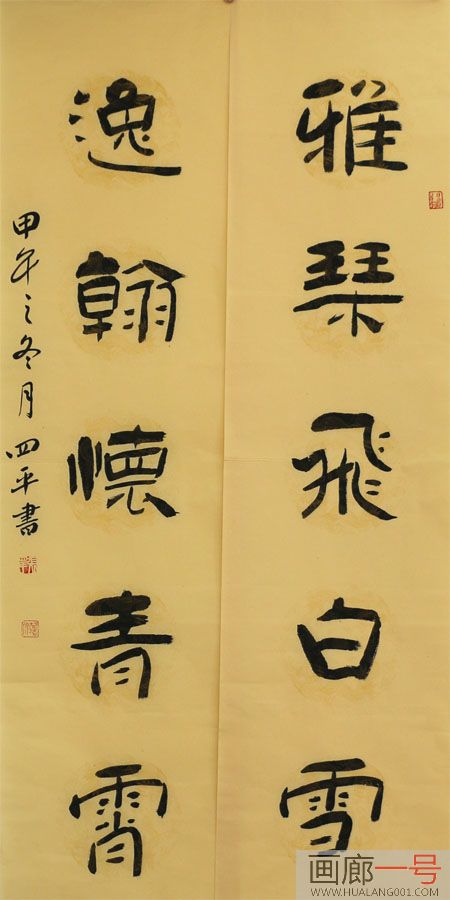 雅琴飛白雪
逸翰懷青霄
甲午之冬月 四平書
画廊一号
WWW.HUALANG001.COM